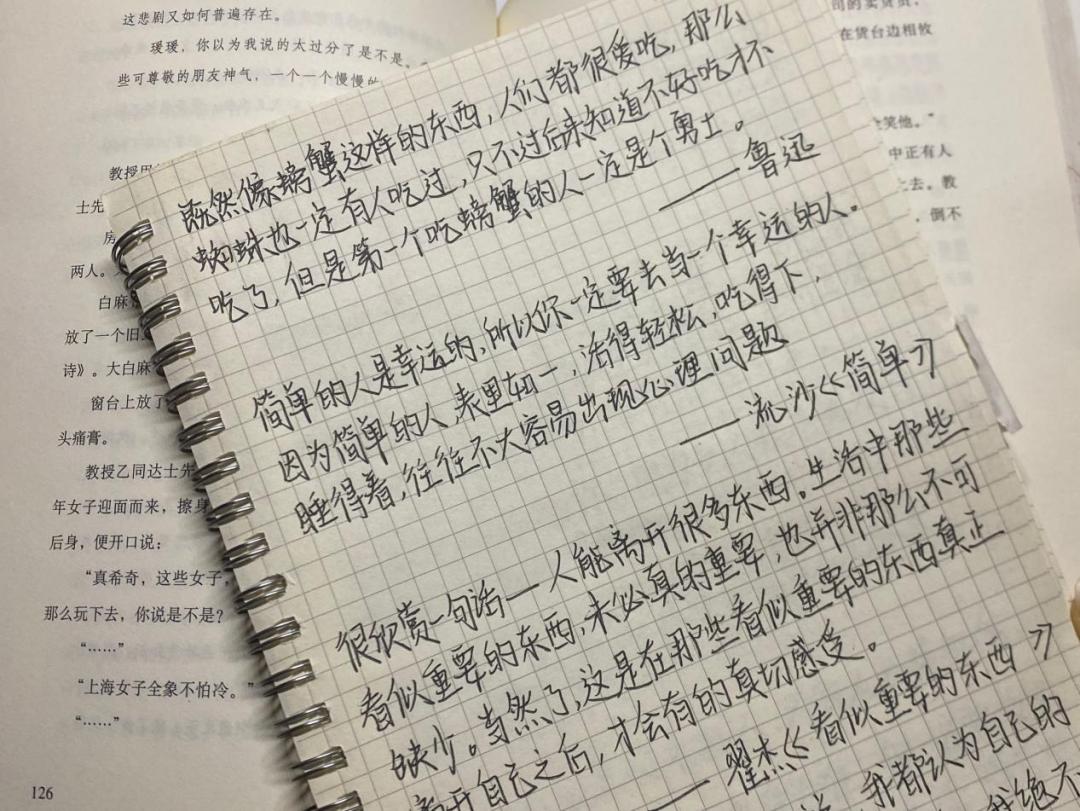 这悲剧又如何普遍存在。
瑗瑗，你以为我说的太过分了是不是。
些可尊敬的朋友神气，一个一个慢慢的
教授
士先
房
两人。
白麻
放了一个旧
诗》。大白麻
窗台上放了
头痛膏。
教授乙同达士先
年女子迎面而来，擦身
后身，便开口说：
“真希奇，这些女子，
那么玩下去，你说是不是？
“……”
“上海女子全象不怕冷。”
“……”
126
既然像螃蟹这样的东西，人们都很爱吃，那么
蜘蛛也一定有人吃过，只不过后来知道不好吃才不
吃了，但是第一个吃螃蟹的人一定是个勇士。
——鲁迅
简单的人是幸运的，所以你一定要去当一个幸运的人。
因为简单的人，表里如一，活得轻松，吃得下，
睡得着，往往不大容易出现心理问题
——流沙《简单》
很欣赏一句话—人能离开很多东西。生活中那些
看似重要的东西，未必真的重要，也并非那么不可
缺少。当然了，这是在那些看似重要的东西真正
离开自己之后，才会有的真切感受。
——翟杰《看似重要的东西》
我都认为自己的
绝不
司的卖货员，
在货台边相攸
笑他。”
中正有人
上去。教
，倒不